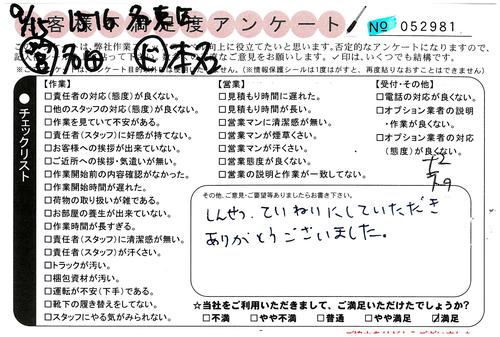 お客様不満足度アンケート
No 052981
【作業】
□責任者の対応(態度)が良くない。
□他のスタッフの対応(態度)が良くない。
□作業を見ていて不安がある。
□責任者(スタッフ)に好感が持てない。
□お客様への挨拶が出来ていない。
□ご近所への挨拶・気遣いが無い。
□作業開始前の内容確認がなかった。
□作業開始時間が遅れた。
□荷物の取り扱いが雑である。
□お部屋の養生が出来ていない。
□作業時間が長すぎる。
□責任者(スタッフ)に清潔感が無い。
□責任者(スタッフ)が汗くさい。
□トラックが汚い。
□梱包資材が汚い。
□運転が不安(下手)である。
□靴下の履き替えをしてない。
□スタッフにやる気がみられない。
●チェックリスト
【営業】
□見積もり時間に遅れた。
□見積もり時間が長い。
□営業マンに清潔感が無い。
□営業マンが煙草くさい。
□営業マンが汗くさい。
□営業態度が良くない。
□営業の説明と作業が一致してない。
【受付・その他】
□電話の対応が良くない。
□オプション業者の説明
・作業が良くない。
□オプション業者の対応
(態度)が良くない。
その他、ご意見・ご要望等ありましたらお書き下さい。
しんせつ、ていねいにしていただき
ありがとうございました。
☆当社をご利用いただきまして、ご満足いただけたでしょうか?
□不満 □やや不満 □普通 □やや満足 ☑満足